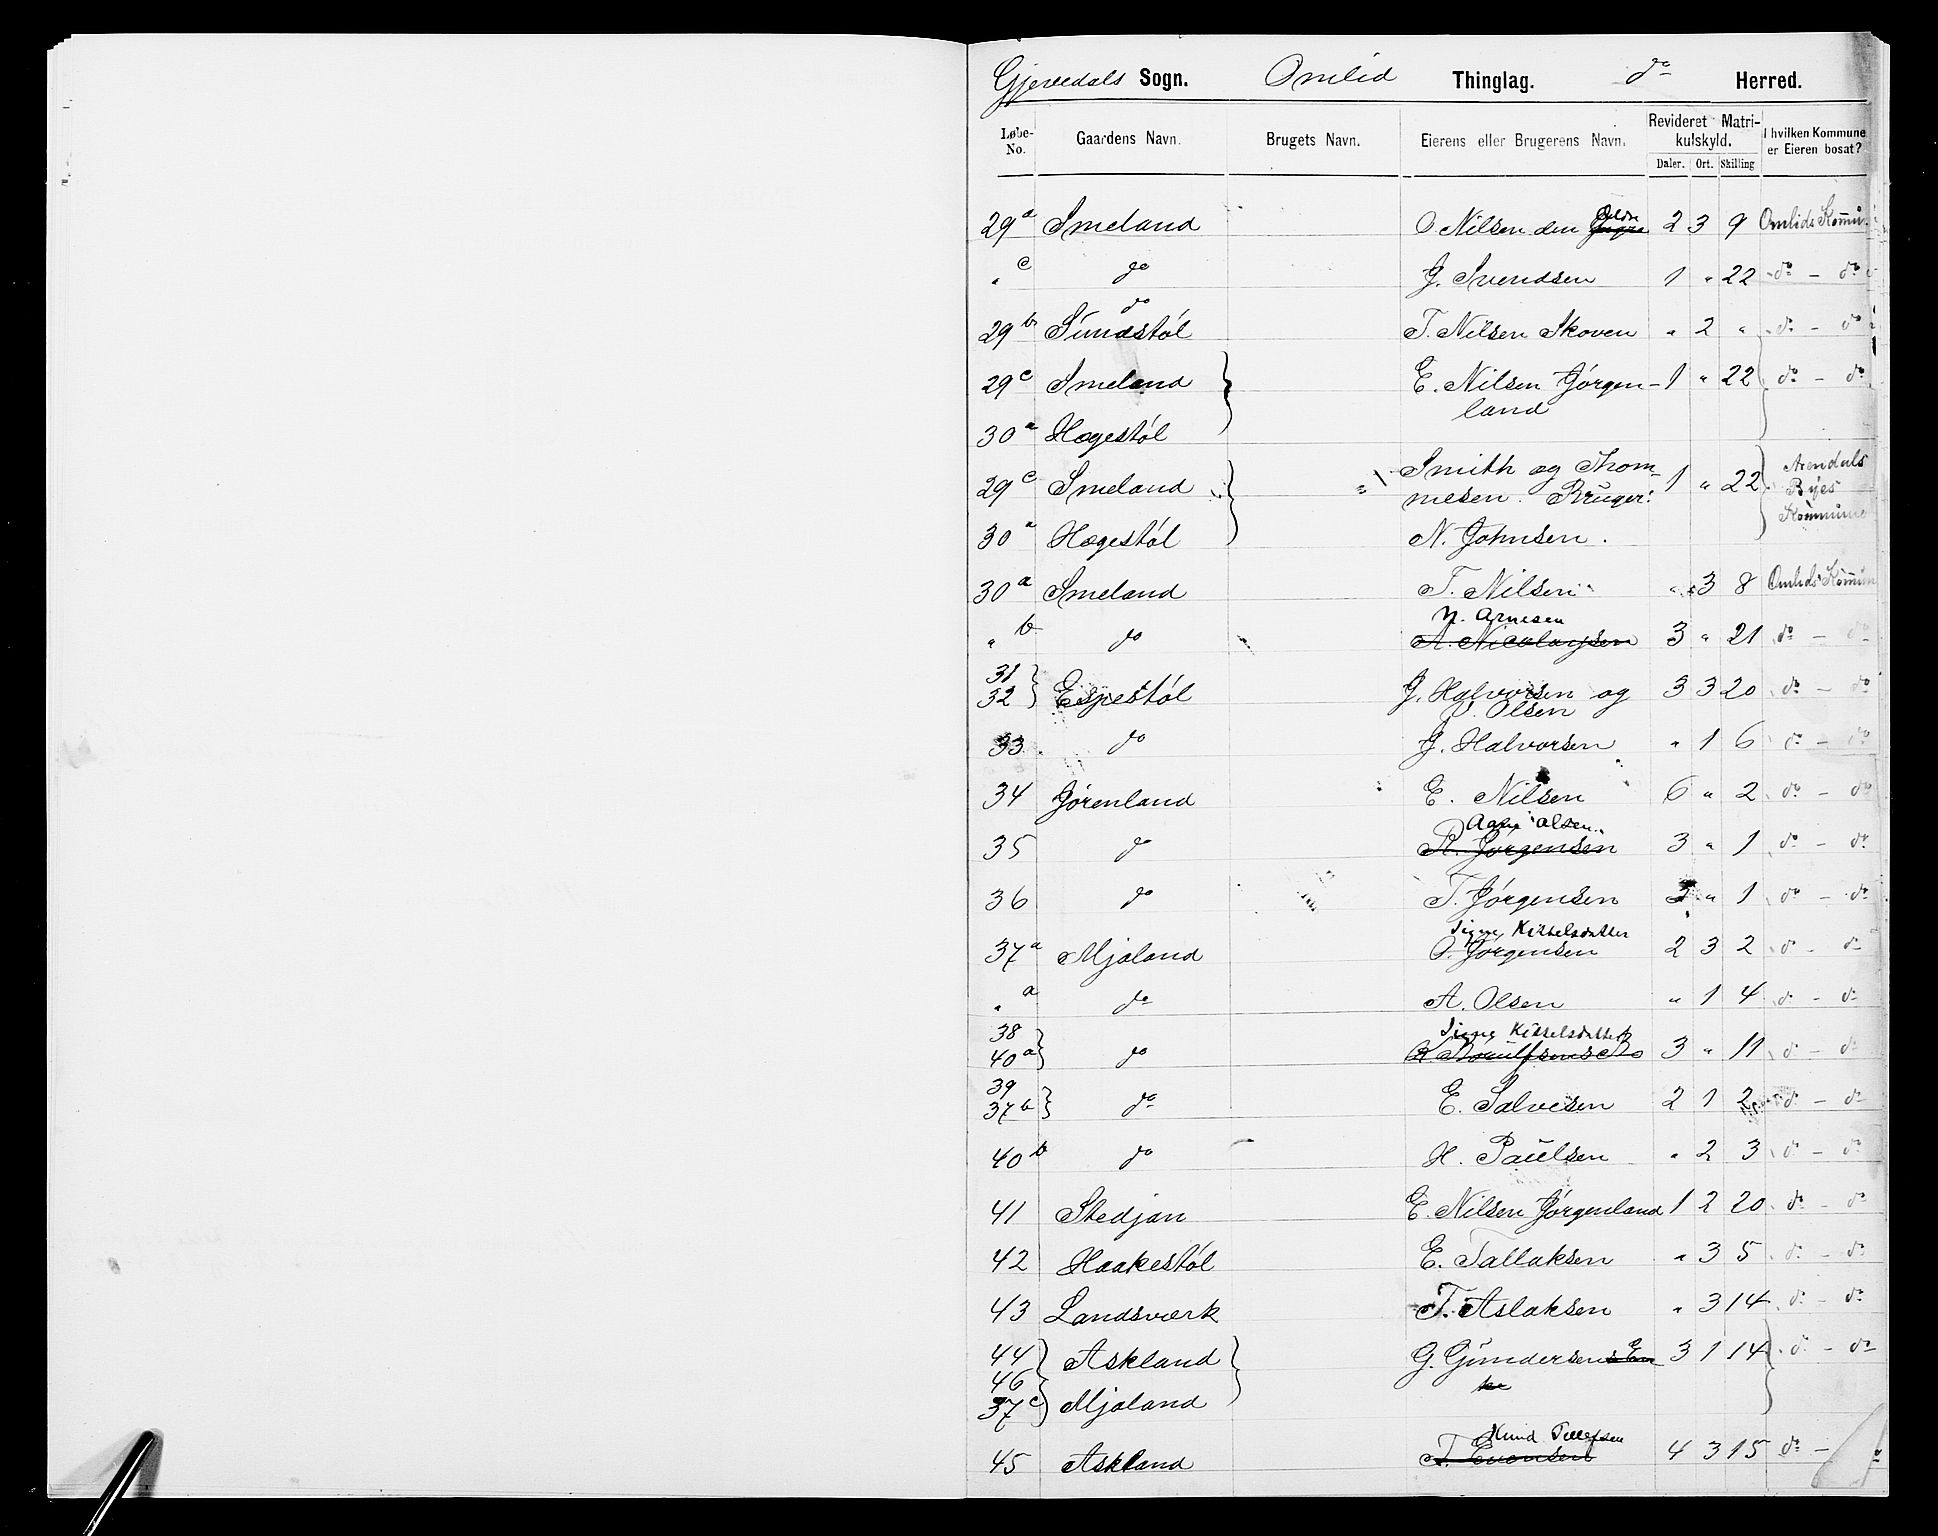 Gjøvdals Sogn. Omlid Thinglag. do Herred.
Løbe-No. Gaardens Navn. Brugets Navn. Eierens eller Brugerens Navn. Revideret Matrikulskyld. Daler. Ort. Skilling I hvilken Kommune er Eieren bosat?
29a Smeland O Nilsen den Yngre Ældre 2 3 9 Omlids Kommu.
" c do J. Svendsen 1 " 22 do - do
do
29b Sundstøl T. Nilsen Skoven " 2 " do - do
29c Smeland } E. Nilsen Jørgen- 1 " 22 do - do
land
30a Hægestøl
29c Smeland } Smith og Thom- 1 " 22 Arendals
mesen. Bruger: Byes
30a Hægestøl N. Johnsen. Kommune
30a Smeland T. Nilsen " 3 8 Omlids Kommun
N. Arnesen
" b do A. Nicolaysen 3 " 21 do - do
31
32 } Espestøl J. Halvorsen og 3 3 20 do - do
O. Olsen
33 do J. Halvorsen " 1 6 do - do
34 Jørenland E. Nilsen 6 " 2 do - do
Olsen
35 do R. Jørgensen 3 " 1 do - do
36 do T. Jørgensen 3 " 1 do - do
Signe Kittelsdatter
37a Mjaland O. Jørgensen 2 3 2 do - do
" a do A. Olsen " 1 4 do - do
38 Signe Kittelsdatter
40a } do 3 " 11 do - do
39
37b } do E. Salvesen 2 1 2 do - do
40b do H. Paulsen " 2 3 do - do
41 Stedjan E. Nilsen Jørgenland 1 2 20 do - do
42 Haakestøl E. Tallaksen " 3 5 do - do
43 Landsværk T. Aslaksen " 3 14 do - do
44 } Askland } G. Gundersens En 3 1 14 do - do
46 ke
37c Mjaland
Knud Tellefsen
45 Askland T. Evensen 4 3 15 do -